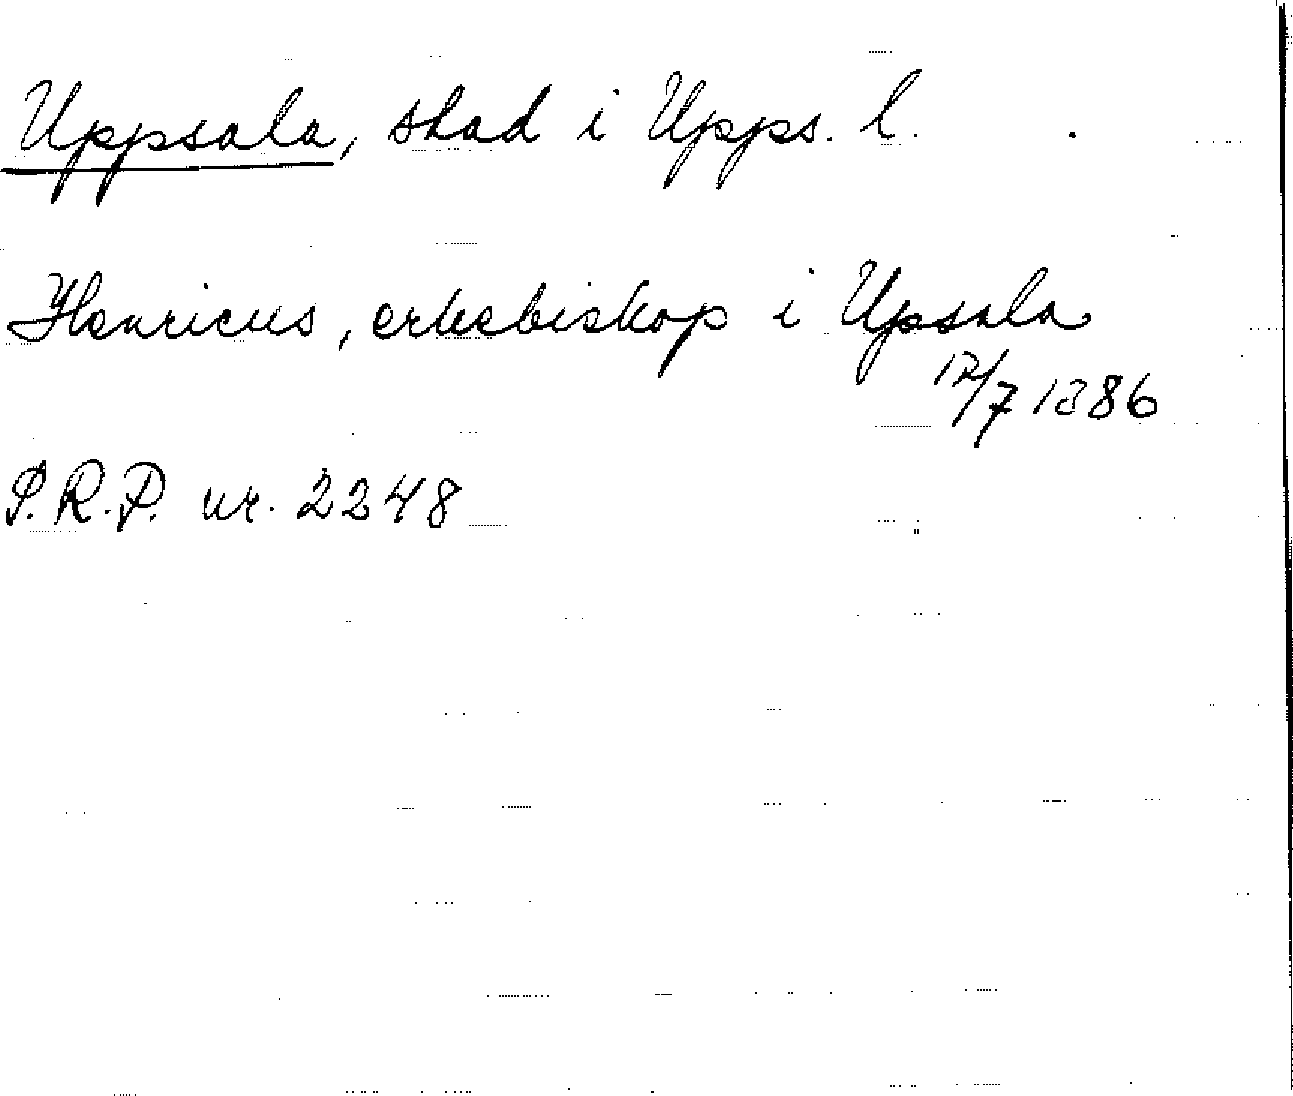 Uppsala, stad i Upps. l.
Henricus, erkebiskop i Upsala
12/7 1386
S.R.P. nr. 2248